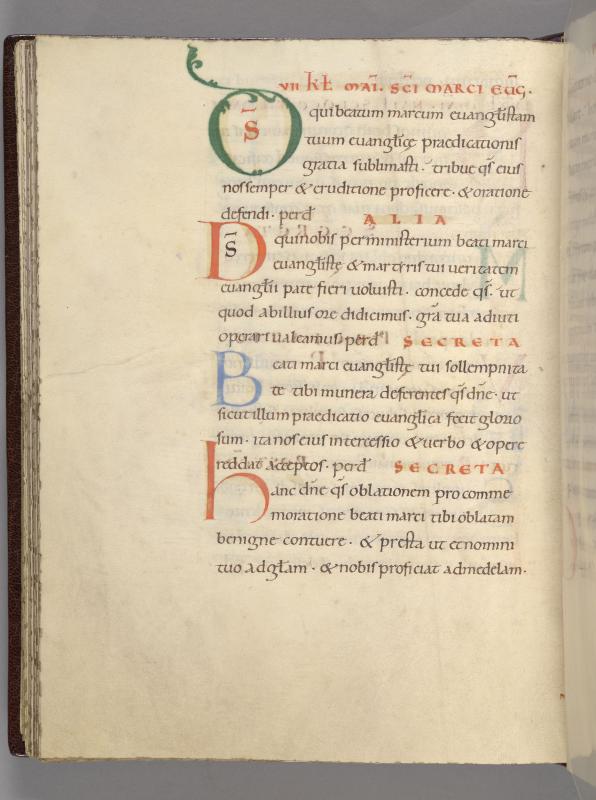 VII KL MAI. SCI MARCI EUG.
DS qui beatum marcum euanglistam
tuum euanglicę praedicationis
gratia sublimasti. tribue qs eius
nos semper & eruditione proficere. & oratione
defendi. per d
ALIA
DS qui nobis per ministerium beati marci
euanglistę & martyris tui ueritatem
euanglii patefieri uoluisti. concede qs. ut
quod ab illius ore didicimus. gra tua adiuti
operari ualeamus. per d SECRETA
Beati marci euanglistę tui sollempnita
te tibi munera deferentes qs dne. ut
sicut illum praedicatio euanglica fecit glorio
sum. ita nos eius intercessio & uerbo & opere
reddat acceptos. per d SECRETA
hanc dne qs oblationem pro comme
moratione beati marci tibi oblatam
benigne contuere. & presta ut et nomini
tuo ad glam. & nobis proficiat ad medelam.